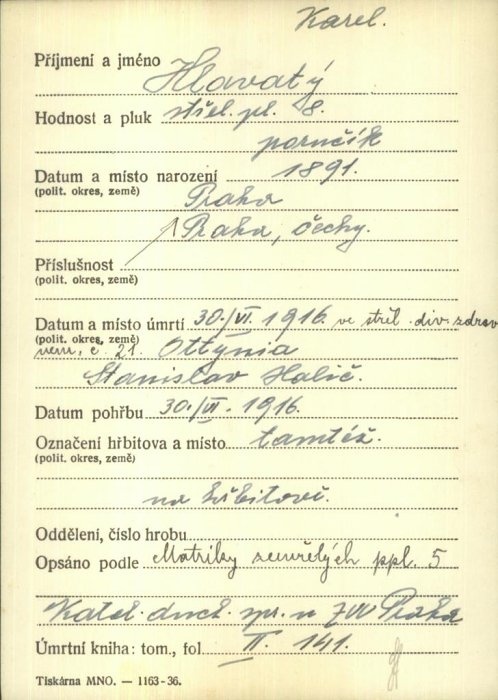 Karel.
Příjmení a jméno Hlavatý
Hodnost a pluk střel. pl. 8.
poručík
Datum a místo narození 1891.
(polit. okres, země) Praha
Praha, Čechy.
Příslušnost
(polit. okres, země)
Datum a místo úmrtí 30./VI. 1916. ve střel. div. zdrav
(polit. okres, země)
nem. č 21. Ottynia
Stanislav Halič.
Datum pohřbu 30./VI. 1916.
Označení hřbitova a místo tamtéž.
(polit. okres, země)
na hřbitově.
Oddělení, číslo hrobu
Opsáno podle Matriky zemřelých ppl. 5
Katol. duch. spr. u ZVV Praha
Úmrtní kniha: tom., fol II. 141.
Tiskárna MNO. — 1163-36.